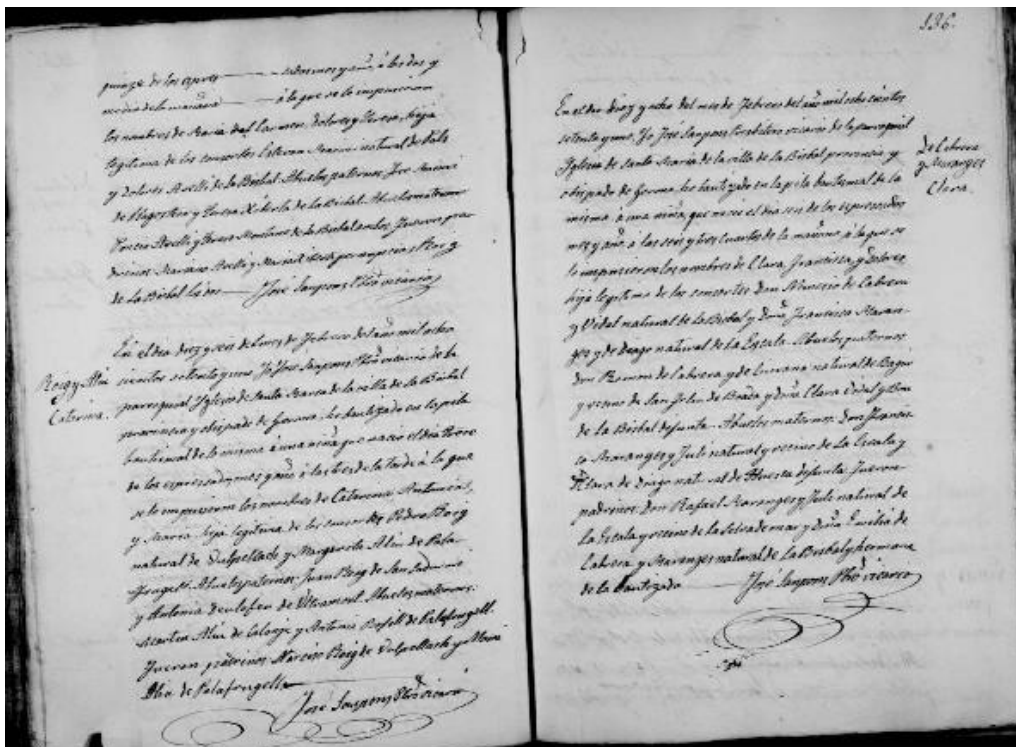 quinze de los espres
mes y año, á las dos y
media de la mañana á la que se le impusieron
los nombres de Maria del Carmen, Dolores y Teresa, hija
legitima de los consortes Estevan natural de
y Dolores de la Bisbal. Abuelos paternos, José
de Llagostera y Teresa de la Bisbal. Abuelos maternos
de la Bisbal Fueron pa-
drinos Mariano y Maria
de la Bisbal José Sanpons Pbro vicario
En el dia diez y seis de Febrero del año mil ocho
Roig y Aliu
Catarina.
cientos setenta y uno, Yo José Sanpons Pbro vicario de la
parroquial Yglesia de Santa Maria de la villa de la Bisbal
provincia y obispado de Gerona, he bautizado en la pila
bautismal de la misma á una niña que nació el dia trece
de los espresados mes y año á las tres de la tarde á la que
se le impusieron los nombres de Catarina Antonia,
y Maria hija legitima de los consortes Pedro Roig
natural de Vulpellach y Margarita Aliu de Pala-
frugell. Abuelos paternos: Juan Roig de San Sadurni
y Antonia de Ultramort. Abuelos maternos:
Martin Aliu de Calonje y Antonia Rosell de Palafrugell.
Fueron padrinos Narciso Roig de Vulpellach y
Aliu de Palafrugell
José Sanpons Pbro vicario
136.
En el dia diez y ocho del mes de Febrero del año mil ocho cientos
setenta y uno, Yo José Sanpons Presbitero vicario de la parroquial
Yglesia de Santa Maria de la villa de la Bisbal provincia y
obispado de Gerona, he bautizado en la pila bautismal de la
misma á una niña, que nació el dia seis de los espresados
mes y año, á las seis y tres cuartos de la mañana, á la que se
le impusieron los nombres de Clara, Francisca, y Dolores,
hija legitima de los consortes Don de Cabrera
y Vidal natural de la Bisbal y Doña Francisca Maran-
ges y de Drago natural de La Escala. Abuelos paternos:
Don Ramon de Cabrera y de natural de Bagur
y vecino de San Feliu de Boada y Doña Clara Vidal y
de la Bisbal defunta. Abuelos maternos: Don Francis-
co Maranges y Juli natural y vecino de La Escala y
Dª Clara de Drago natural de Huesca defunta. Fueron
padrinos: Don Rafael Maranges y Juli natural de
la Escala y vecino de la Selva de mar y Doña Emilia de
Cabrera y Maranges natural de La Bisbal y hermana
de la bautizada José Sanpons Pbro vicario
De Cabrera
y Maranges
Clara.